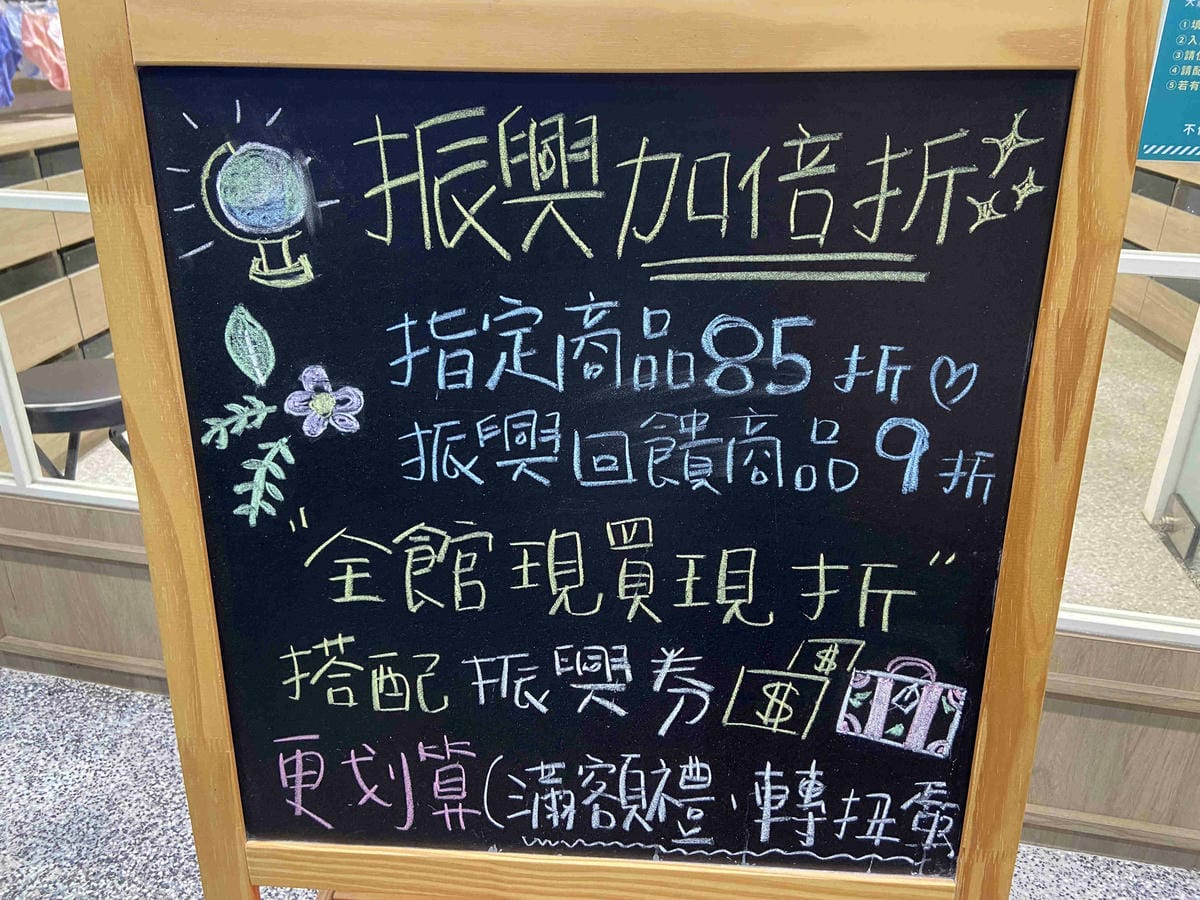 振興加倍折
指定商品85折
振興回饋商品9折
"全館現買現折"
搭配振興券
$
$
更划算(滿額禮、轉扭蛋
①填
②入
③請
④請配
⑤若有
不